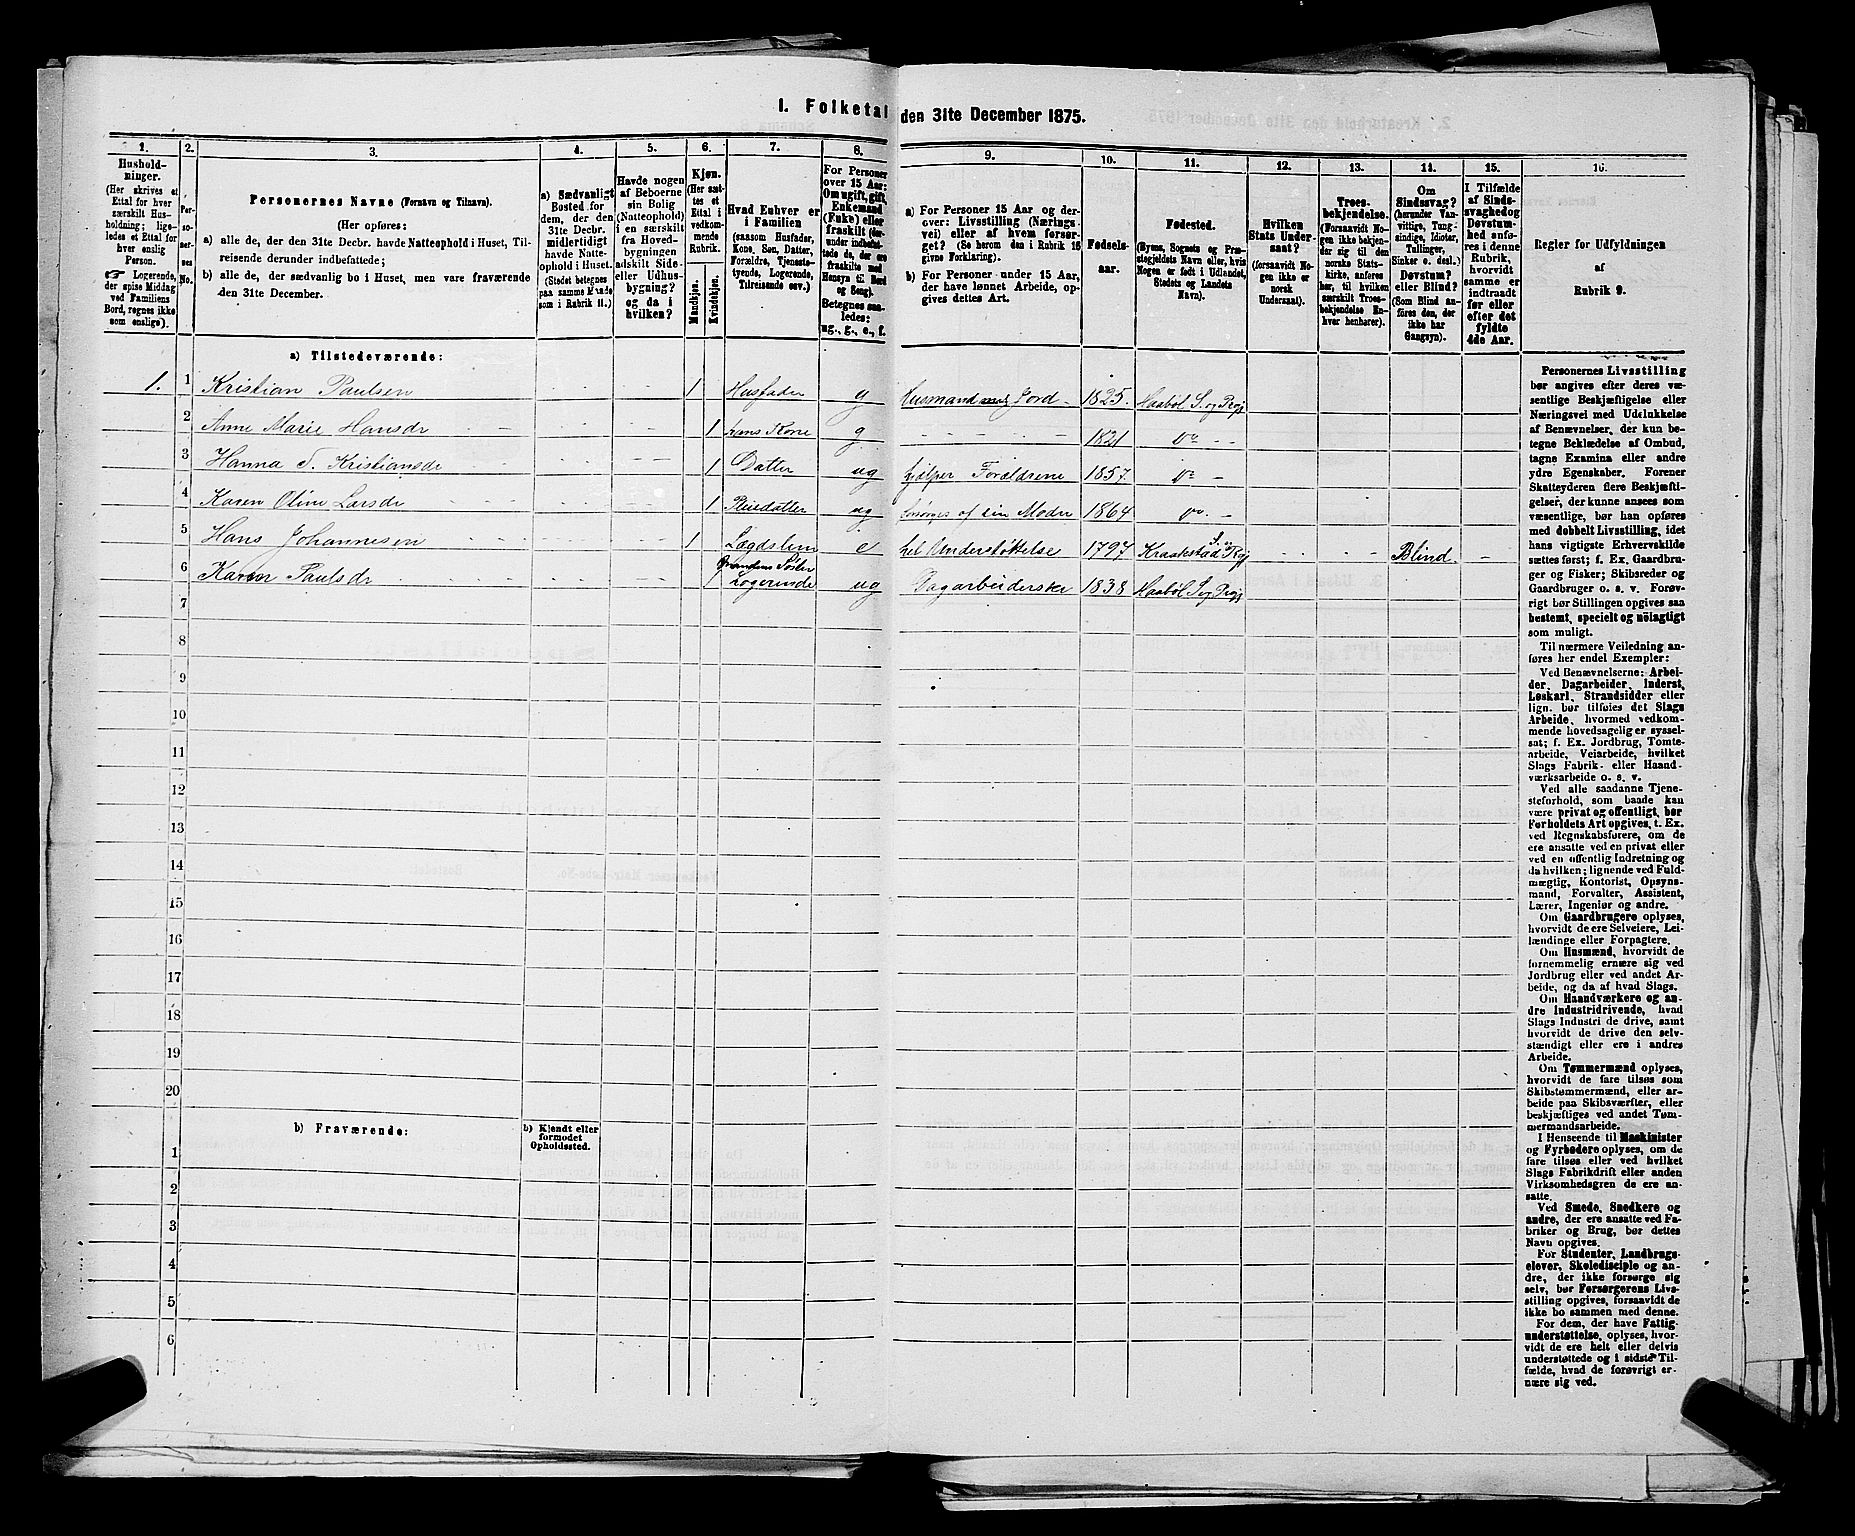 I. Folketal den 31te December 1875.
1. 2. 3. 4. 5. 6. 7. 8. 9. 10. 11. 12. 13. 14. 15. 16.
Husholdninger.
(Her skrives et
Ettal for hver
særskilt Husholdning;
ligeledes et Ettal for
hver enslig
Person.
☞ Logerende,
der spise Middag
ved Familiens
Bord, regnes ikke
som enslige).
Personernes No.
Personernes Navne (Fornavn og Tilnavn).
(Her opføres:
a) alle de, der den 31te Decbr. havde Natteophold i Huset, Tilreisende derunder indbefattede;
b) alle de, der sædvanlig bo i Huset, men vare fraværende den 31te December.
a) Sædvanligt
Bosted for
dem, der den
31te Decbr.
midlertidigt
havde Natteophold
i Huset.
(Stedet betegnes
paa samme Maade
som i Rubrik 11.)
Havde nogen
af Beboerne
sin Bolig
(Natteophold)
i en særskilt
fra Hovedbygningen
adskilt Side- eller
Udhusbygning?
og da i
hvilken?
Kjøn.
(Her sættes et
Ettal i
vedkommende
Rubrik.
Mandkjøn.
Kvindekjøn.
Hvad Enhver er
i Familien
(saasom Husfader,
Kone, Søn, Datter,
Forældre, Tjenestetyende,
Logerende,
Tilreisende osv.)
For Personer
over 15 Aar:
Om ugift, gift,
Enkemand
(Enke) eller
fraskilt (derunder
indbefattede de, der ere
fraskilte med
Hensyn til Bord
og Seng).
Betegnes saaledes:
ug., g., e., f.
a) For Personer 15 Aar og derover: Livsstilling (Næringsvei) eller af hvem forsørget? (Se herom den i Rubrik 16 givne Forklaring).
b) For Personer under 15 Aar, der have lønnet Arbeide, opgives dettes Art.
Fødselsaar.
Fødested.
(Byens, Sognets og Præstegjeldets
Navn eller, hvis
Nogen er født i Udlandet,
Stedets og Landets
Navn).
Hvilken
Stats Undersaat?
(forsaavidt Nogen
ikke er
norsk
Undersaat).
Troesbekjendelse.
(Forsaavidt Nogen
ikke bekjender
sig til den
norske Statskirke,
anføres
her, til hvilken
særskilt Troesbekjendelse
Enhver henhører).
Om
Sindssvag?
(herunder Vanvittige,
Tungsindige,
Idioter,
Tullinger,
Sinker o. desl.)
Døvstum?
eller Blind?
(Som Blind anføres
den, der
ikke har
Gangsyn).
I Tilfælde
af Sindssvaghed
og
Døvstumhed
anføres
i denne
Rubrik,
hvorvidt
samme er
indtraadt
før eller
efter det
fyldte
4de Aar.
Regler for Udfyldningen
af
Rubrik 9.
a) Tilstedeværende:
1. 1 Kristian Paulsen 1 Husfader g Husmand med Jord 1825. Haabøl S. og Prgj
2 Anne Marie Hansdr 1 hans Kone g 1821 do
3 Hanna S. Kristiansdr 1 Datter ug hjælper Forældrene 1857. do
4 Karen Oline Larsdr 1 Pleiedatter ug forsørges af sin Moder 1864 do.
5 Hans Johannesen 1 Lægdslem e hel Understøttelse 1797 Kraakstad S. og Prgj Blind.
6 Karen Paulsdr 1 Logerende ug Dagarbeiderske 1838 Haabøl S og Prgj
7
8
9
10
11
12
13
14
15
16
17
18
19
20
b) Fraværende:
b) Kjendt eller
formodet
Opholdssted.
1
2
3
4
5
6
Personernes Livsstilling
bør angives efter deres væsentlige
Beskjæftigelse eller
Næringsvei med Udelukkelse
af Benævnelser, der kun betegne
Beklædelse af Ombud,
tagne Examina eller andre
ydre Egenskaber. Forener
Skatteyderen flere Beskjæftigelser,
der kunne ansees som
væsentlige, bør han opføres
med dobbelt Livsstilling, idet
hans vigtigste Erhvervskilde
sættes først; f. Ex. Gaardbruger
og Fisker; Skibsreder og
Gaardbruger o. s. v. Forøvrigt
bør Stillingen opgives saa
bestemt, specielt og nøiagtigt
som muligt.
Til nærmere Veiledning anføres
her endel Exempler:
Ved Benævnelserne: Arbeider,
Dagarbeider, Inderst,
Løskarl, Strandsidder eller
lign. bør tilføies det Slags
Arbeide, hvormed vedkommende
hovedsagelig er sysselsat;
f. Ex. Jordbrug, Tomtearbeide,
Veiarbeide, hvilket
Slags Fabrik- eller Haandværksarbeide
o. s. v.
Ved alle saadanne Tjenesteforhold,
som baade kan
være privat og offentligt, bør
Forholdets Art opgives, t. Ex.
ved Regnskabsførere, om de
ere ansatte ved en privat eller
ved en offentlig Indretning og
da hvilken; lignende ved Fuldmægtig,
Kontorist, Opsynsmand,
Forvalter, Assistent,
Lærer, Ingeniør og andre.
Om Gaardbrugere oplyses,
hvorvidt de ere Selveiere, Leilændinge
eller Forpagtere.
Om Husmænd, hvorvidt de
fornemmelig ernære sig ved
Jordbrug eller ved andet Arbeide,
og da af hvad Slags.
Om Haandværkere og andre
Industridrivende, hvad
Slags Industri de drive, samt
hvorvidt de drive den selvstændigt
eller ere i andres
Arbeide.
Om Tømmermænd oplyses,
hvorvidt de fare tilsøs som
Skibstømmermænd, eller arbeide
paa Skibsværfter, eller
beskjæftiges ved andet Tømmermandsarbeide.
I Henseende til Maskinister
og Fyrbødere oplyses, om de
fare tilsøs eller ved hvilket
Slags Fabrikdrift eller anden
Virksomhedsgren de ere ansatte.
Ved Smede, Snedkere og
andre, der ere ansatte ved Fabriker
og Brug, bør dettes
Navn opgives.
For Studenter, Landbrugselever,
Skoledisciple og andre,
der ikke forsørge sig
selv, bør Forsørgerens Livsstilling
opgives, forsaavidt de
ikke bo sammen med denne.
For dem, der have Fattigunderstøttelse,
oplyses, hvorvidt
de ere helt eller delvis
understøttede og i sidste Tilfælde,
hvad de forøvrigt ernære
sig ved.